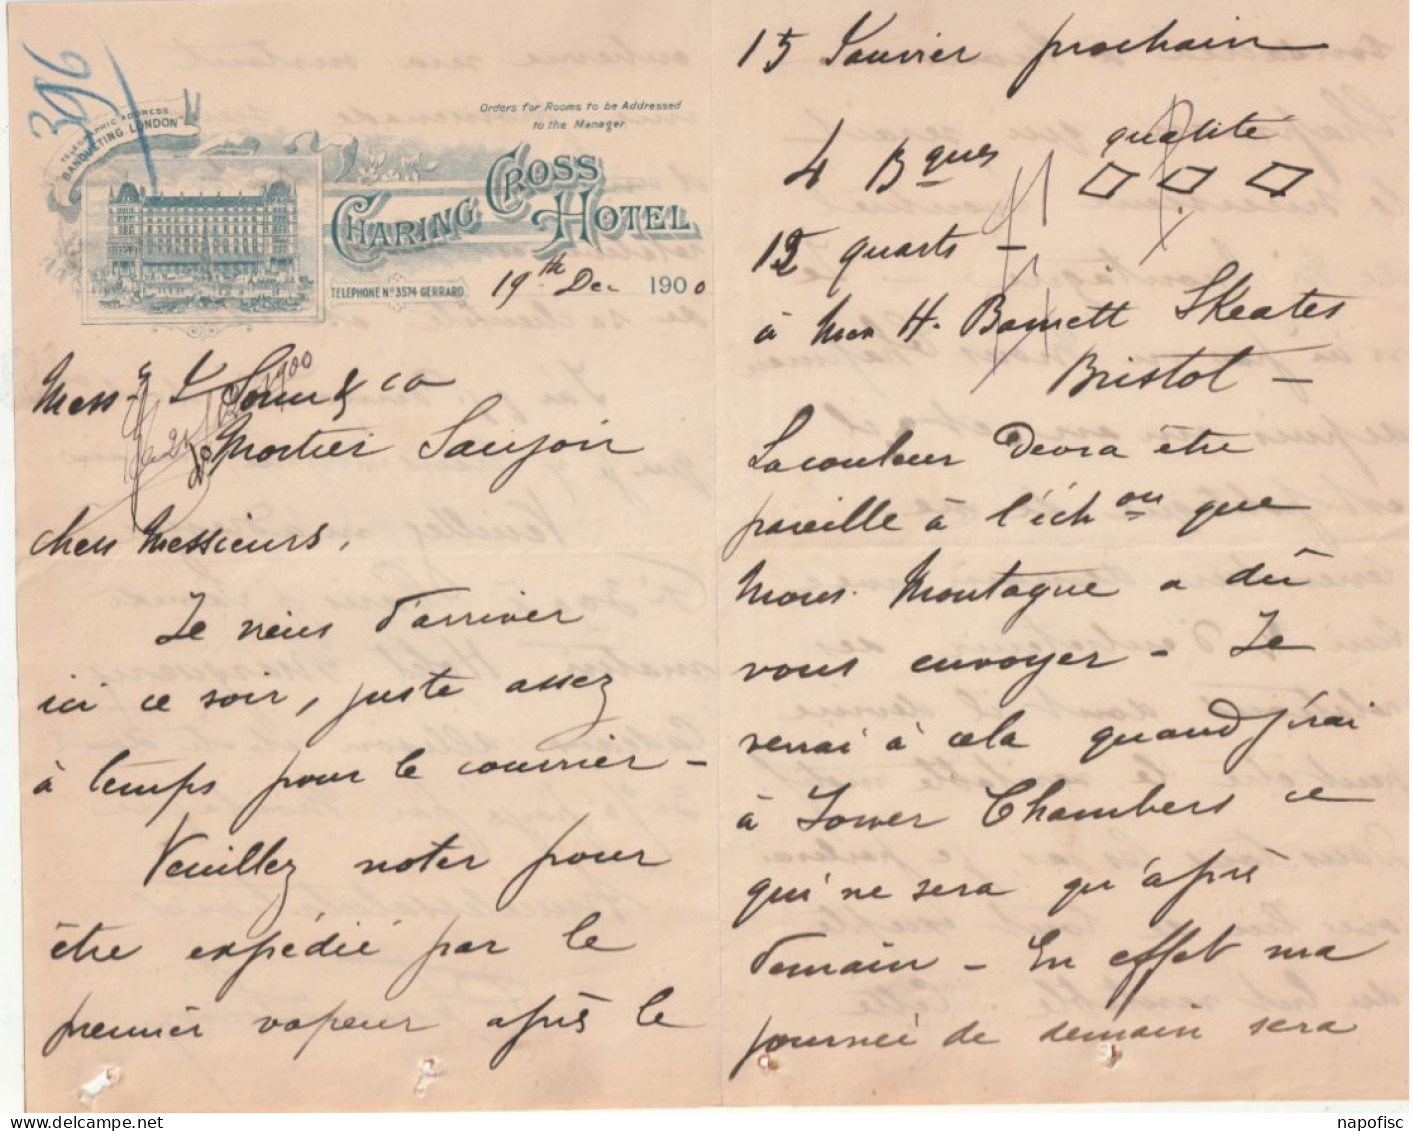 396
TELEGRAPHIC ADDRESS
"BANQUETING, LONDON"
Orders for Rooms to be Addressed
to the Manager.
CHARING CROSS
HOTEL
TELEPHONE No 3574 GERRARD
19th Dec 1900
Mess & Co
Mortier Saujon
Chers Messieurs,
Je viens d'arriver
ici ce soir, juste assez
à temps pour le courrier -
Veuillez noter pour
être expédié par le
premier vapeur après le
15 Janvier prochain
4 Bques qualité
12 quarts -
à H. Barnett Skeates
Bristol -
La couleur devra être
pareille à l'échou que
Mons. Montague a dû
vous envoyer - Je
verrai à cela quand j'irai
à Tower Chambers ce
qui ne sera qu'après
demain - En effet ma
journée de demain sera
napofisc